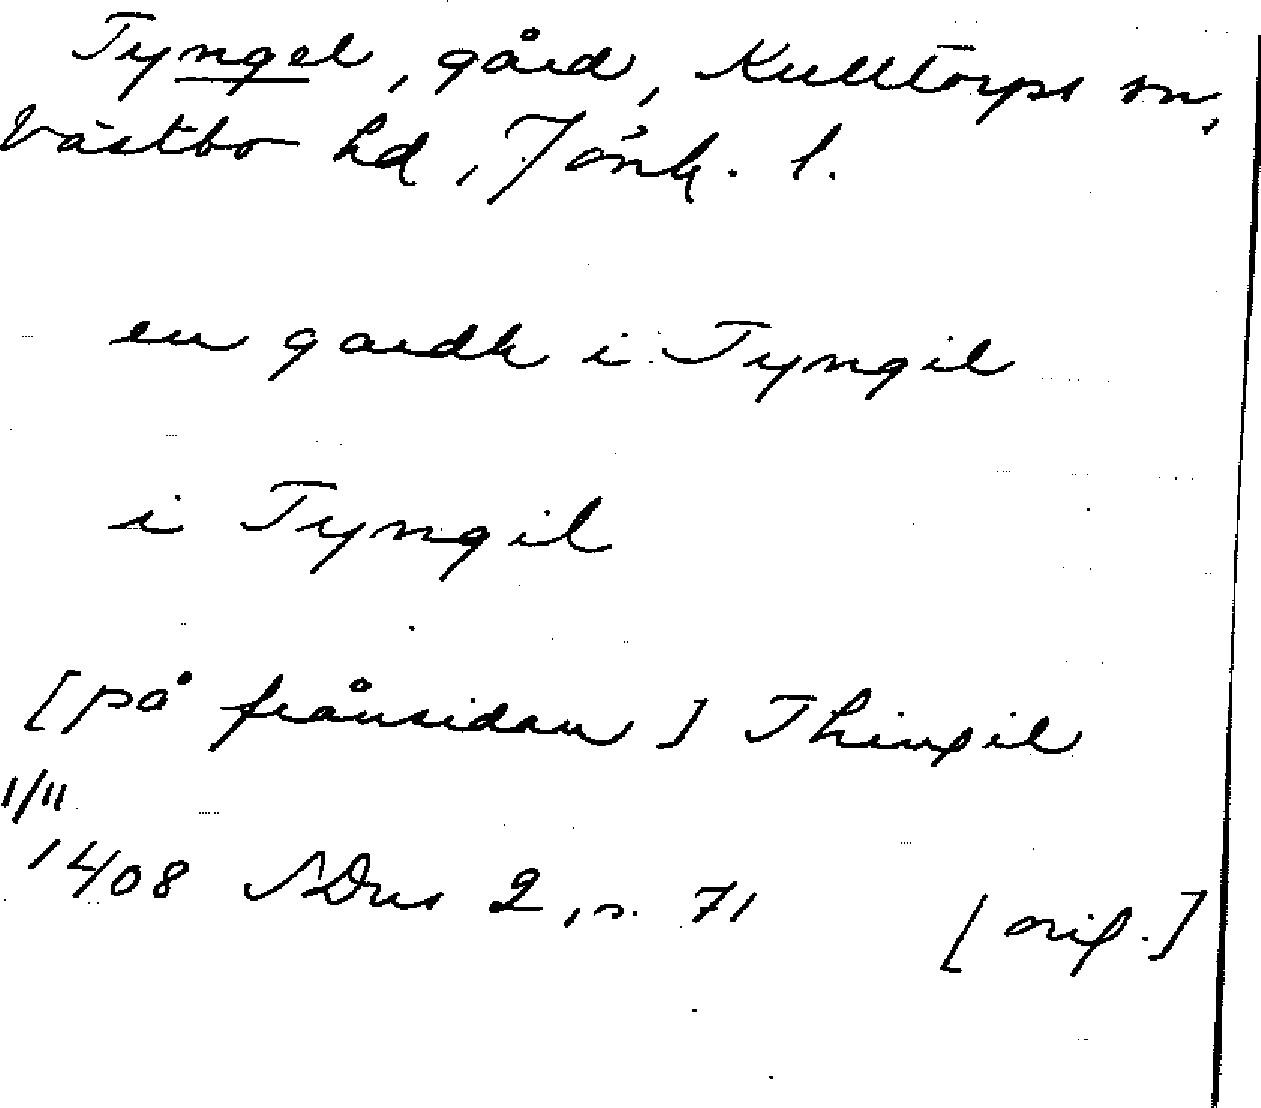 Tyngel, gård, Kulltorps sn,
Västbo hd, Jönk. l.
en gardh i Tyngil
i Tyngil
[på frånsidan] Thingil
1/11
1408 SDns 2, s. 71 [orig.]